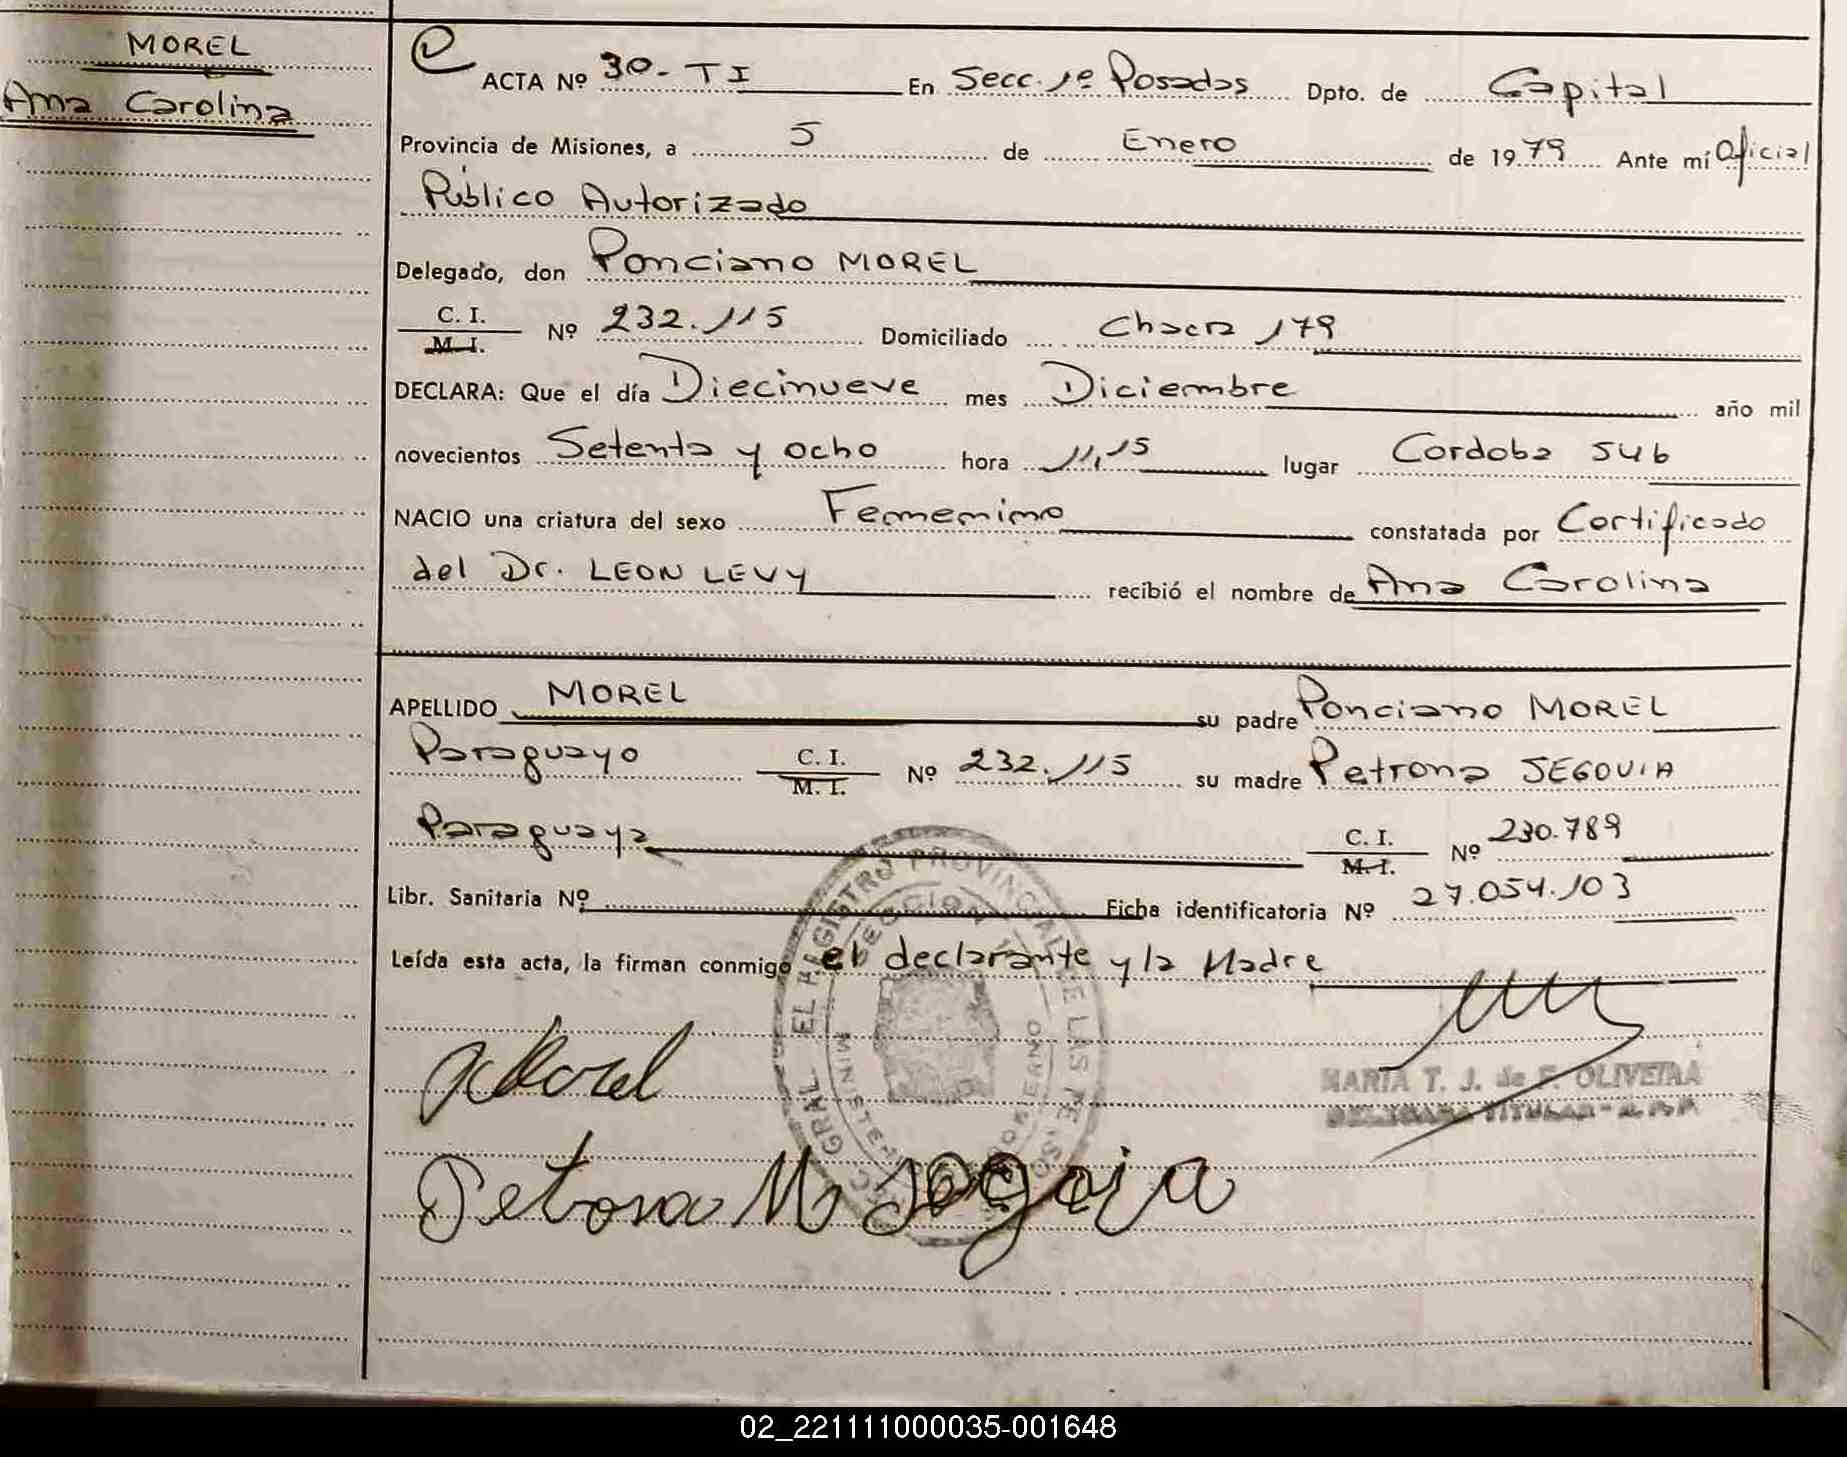 MOREL
Ana Carolina
ACTA Nº 30 - T I En Secc. 1º Posadas Dpto. de Capital
Provincia de Misiones, a 5 de Enero de 1979 Ante mí Oficial
Público Autorizado
Delegado, don Ponciano MOREL
C. I.
M. I. Nº 232.115 Domiciliado Chacra 179
DECLARA: Que el día Diecinueve mes Diciembre año mil
novecientos Setenta y ocho hora 11,15 lugar Cordoba 546
NACIO una criatura del sexo Femenino constatada por Certificado
del Dr. LEON LEVY recibió el nombre de Ana Carolina
APELLIDO MOREL su padre Ponciano MOREL
Paraguayo C. I. M. I. Nº 232.115 su madre Petrona SEGOVIA
Paraguaya C. I. M. I. Nº 230.789
Libr. Sanitaria Nº Ficha identificatoria Nº 27.054.103
Leída esta acta, la firman conmigo el declarante y la Madre
Morel
MARIA T. J. de F. OLIVEIRA
Petrona M
REGISTRO PROVINCIAL DE LAS PERSONAS
02_221111000035-001648